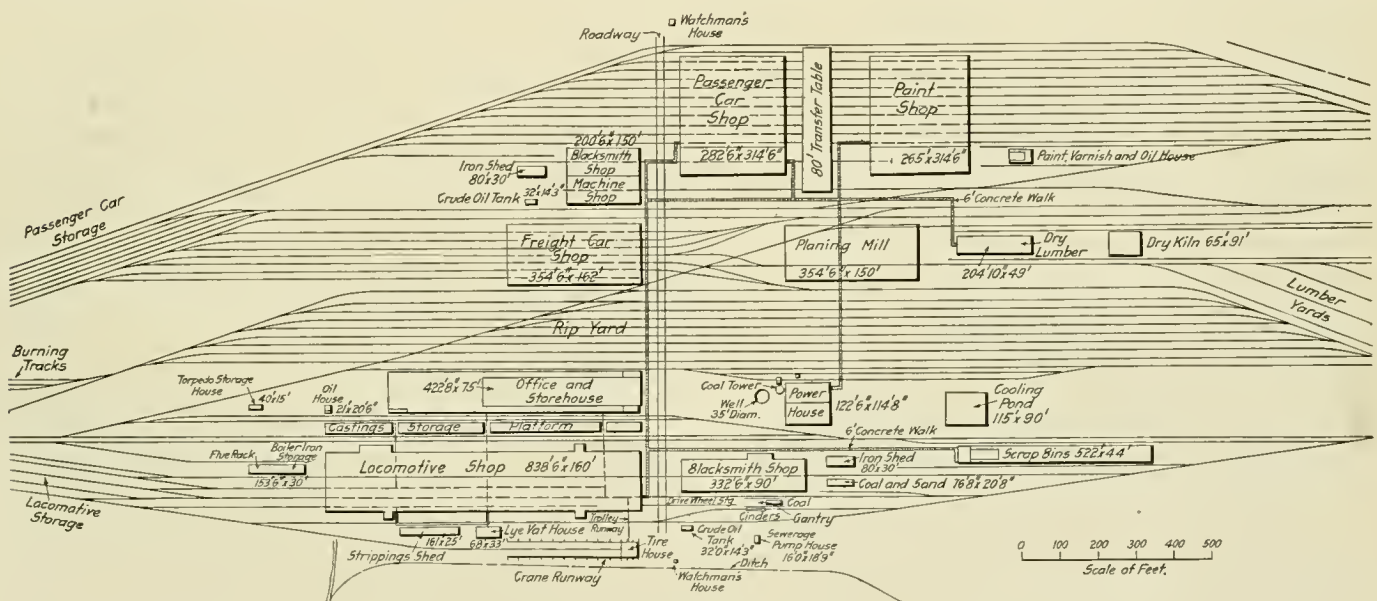 Watchman's
House
Roadway
Passenger
Car
Shop
282'6"x314'6"
80' Transfer Table
Paint
Shop
265'x314'6"
Paint, Varnish and Oil House
200'6"x150'
Blacksmith
Shop
Machine
Shop
Iron Shed
80'x30'
Crude Oil Tank 32'x14'3"
6' Concrete Walk
Passenger Car
Storage
Freight Car
Shop
354'6"x162'
Planing Mill
354'6"x150'
Dry
Lumber
204'10"x49'
Dry Kiln 65'x91'
Lumber
Yards
Rip Yard
Burning
Tracks
Torpedo Storage
House
40'x15'
Oil
House
21'x20'6"
422'8"x75'
Office and
Storehouse
Coal Tower
Well
35' Diam.
Power
House
122'6"x114'8"
Cooling
Pond
115'x90'
Castings
Storage
Platform
6' Concrete Walk
Flue Rack
Boiler Iron
Storage
153'6"x30'
Locomotive Shop 838'6"x160'
Blacksmith Shop
332'6"x90'
Iron Shed
80'x30'
Scrap Bins 522'x44'
Coal and Sand 76'8"x20'8"
Locomotive
Storage
Drive Wheel Stg.
Coal
Cinders
Gantry
Strippings Shed
161'x25'
Lye Vat House
68'x33'
Trolley
Runway
Tire
House
Crane Runway
Crude Oil
Tank
32'0"x14'3"
Sewerage
Pump House
16'0"x18'9"
Ditch
Watchman's
House
0 100 200 300 400 500
Scale of Feet.